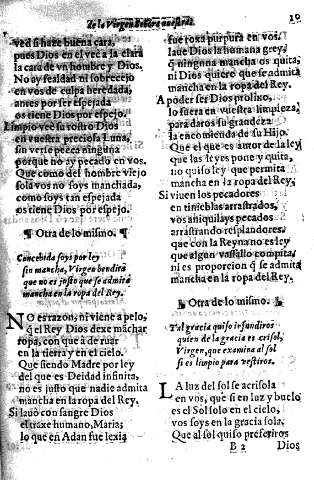 de la Virgen
ved si haze buena cara,
pues Dios en el ve a la clara
la cara de vn hombre y Dios.
No ay fealdad ni sobrecejo
en vos de culpa heredada,
antes por ser espejada
os tiene Dios por espejo.
Limpio vee su rostro Dios
en vuestra preciosa Luna,
sin verse pieza ninguna
porque no ay pecado en vos.
Que como del hombre viejo
sola vos no soys manchada,
como soys tan espejada
os tiene Dios por espejo.
¶ Otra de lo mismo. ¶
Concebida soys por ley
sin mancha, Virgen bendita
que no es justo que se admita
mancha en la ropa del Rey.
NO es razon, ni viene a pelo,
q̃ el Rey Dios dexe mãchar
ropa, con que a de ruar
en la tierra y en el cielo.
Que siendo Madre por ley
del que es Deidad infinita,
no es justo que nadie admita
mancha en la ropa del Rey.
Si lauò con sangre Dios
el traxe humano, Maria;
lo que en Adan fue lexia
fue roxa purpura en vos.
laue Dios la humana grey,
q̃ ninguna mancha os quita,
ni Dios quiere que se admita
mancha en la ropa del Rey.
A poder ser Dios prolixo,
lo fuera en vuestra limpieza,
para daros su grandeza
la encomienda de su Hijo.
Que el que es autor de la ley
que las leyes pone y quita,
no quiso ley que permita
mancha en la ropa del Rey.
Si viuen los pecadores
en tinieblas arrastrados,
vos aniquilays pecados
arrastrando resplandores.
que con la Reyna no es ley
que algun vassallo compita,
ni es proporcion q̃ se admita
mancha en la ropa del Rey.
¶ Otra de lo mismo. ¶
Tal gracia quiso infundiros
quien de la gracia es crisol,
Virgen, que examina al sol
si es limpio para vestiros.
LA luz del sol se acrisola
en vos, que si en luz y buelo
es el Sol solo en el cielo,
vos soys en la gracia sola.
Que al sol quiso preferiros
B 2 Dios